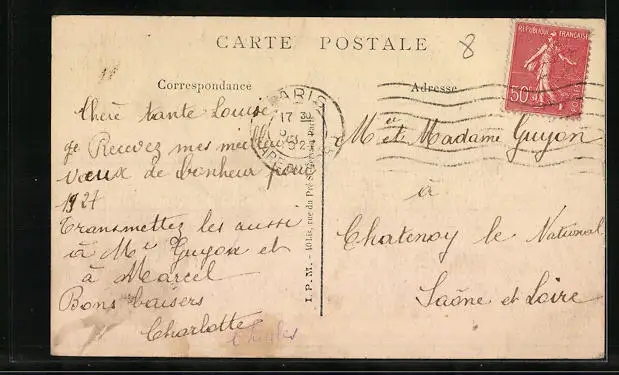 CARTE POSTALE
8
Correspondance
Adresse
RÉPUBLIQUE FRANÇAISE
50c
PARIS
17 30
Chère tante Louise
Je Recevez mes meilleurs
vœux de bonheur pour
1927
Transmettez les aussi
à Mr Guyon et
à Marcel
Bons baisers
Charlotte
Charles
I. P. M. - 40 bis, rue du Pré-St-Gervais Paris
Mr et Madame Guyon
à
Chatenoy le National
Saône et Loire